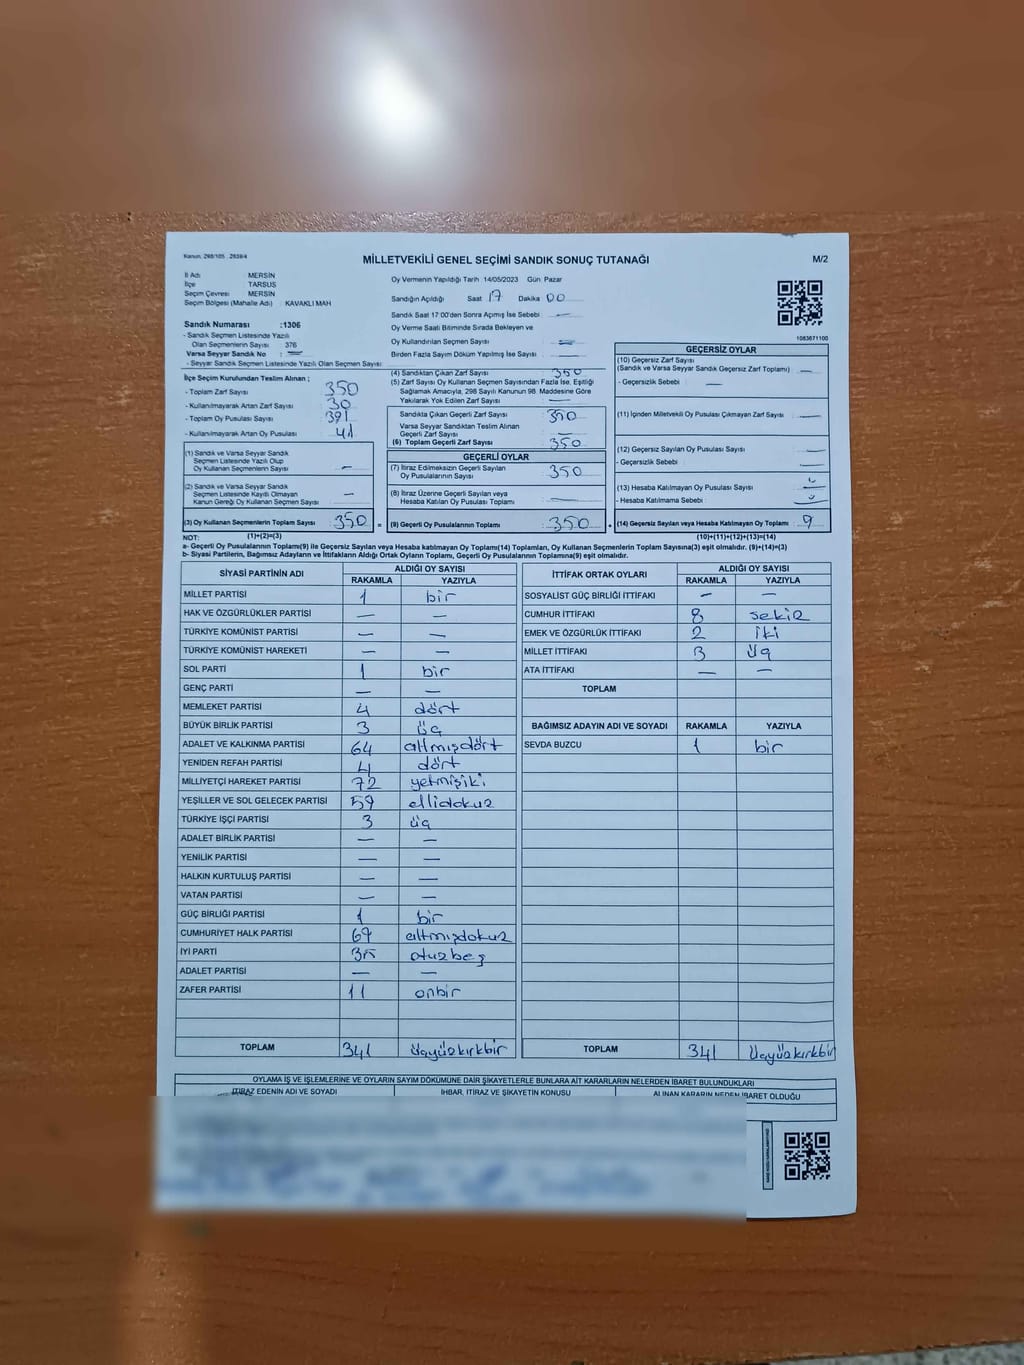 Kanun. 298/105 , 2839/4
MİLLETVEKİLİ GENEL SEÇİMİ SANDIK SONUÇ TUTANAĞI
M/2
İl Adı MERSİN
İlçe TARSUS
Seçim Çevresi MERSİN
Seçim Bölgesi (Mahalle Adı) KAVAKLI MAH
Sandık Numarası :1306
- Sandık Seçmen Listesinde Yazılı
Olan Seçmenlerin Sayısı 376
Varsa Seyyar Sandık No : —
- Seyyar Sandık Listesinde Yazılı Olan Seçmen Sayısı
Oy Vermenin Yapıldığı Tarih 14/05/2023 Gün Pazar
Sandığın Açıldığı Saat 17 Dakika 00
Sandık Saat 17:00'den Sonra Açılmış İse Sebebi : —
Oy Verme Saati Bitiminde Sırada Bekleyen ve
Oy Kullandırılan Seçmen Sayısı : —
Birden Fazla Sayım Döküm Yapılmış İse Sayısı : —
1083671100
İlçe Seçim Kurulundan Teslim Alınan ;
- Toplam Zarf Sayısı 350
- Kullanılmayarak Artan Zarf Sayısı 30
- Toplam Oy Pusulası Sayısı 391
- Kullanılmayarak Artan Oy Pusulası 41
(1) Sandık ve Varsa Seyyar Sandık
Seçmen Listesinde Yazılı Olup
Oy Kullanan Seçmenlerin Sayısı : —
(2) Sandık ve Varsa Seyyar Sandık
Seçmen Listesinde Kayıtlı Olmayan
Kanun Gereği Oy Kullanan Seçmen Sayısı : —
(3) Oy Kullanan Seçmenlerin Toplam Sayısı : 350 =
(1)+(2)=(3)
(4) Sandıktan Çıkan Zarf Sayısı : 350
(5) Zarf Sayısı Oy Kullanan Seçmen Sayısından Fazla İse, Eşitliği
Sağlamak Amacıyla, 298 Sayılı Kanunun 98. Maddesine Göre
Yakılarak Yok Edilen Zarf Sayısı : —
Sandıkta Çıkan Geçerli Zarf Sayısı : 350
Varsa Seyyar Sandıktan Teslim Alınan
Geçerli Zarf Sayısı : —
(6) Toplam Geçerli Zarf Sayısı : 350
GEÇERLİ OYLAR
(7) İtiraz Edilmeksizin Geçerli Sayılan
Oy Pusulalarının Sayısı : 350
(8) İtiraz Üzerine Geçerli Sayılan veya
Hesaba Katılan Oy Pusulası Toplamı : —
(9) Geçerli Oy Pusulalarının Toplamı : 350 +
GEÇERSİZ OYLAR
(10) Geçersiz Zarf Sayısı
(Sandık ve Varsa Seyyar Sandık Geçersiz Zarf Toplamı) : —
- Geçersizlik Sebebi : —
(11) İçinden Milletvekili Oy Pusulası Çıkmayan Zarf Sayısı : —
(12) Geçersiz Sayılan Oy Pusulası Sayısı : —
- Geçersizlik Sebebi : —
(13) Hesaba Katılmayan Oy Pusulası Sayısı :
- Hesaba Katılmama Sebebi :
(14) Geçersiz Sayılan veya Hesaba Katılmayan Oy Toplamı : 9
(10)+(11)+(12)+(13)=(14)
NOT:
a- Geçerli Oy Pusulalarının Toplamı(9) ile Geçersiz Sayılan veya Hesaba katılmayan Oy Toplamı(14) Toplamları, Oy Kullanan Seçmenlerin Toplam Sayısına(3) eşit olmalıdır. (9)+(14)=(3)
b- Siyasi Partilerin, Bağımsız Adayların ve İttifakların Aldığı Ortak Oyların Toplamı, Geçerli Oy Pusulalarının Toplamına(9) eşit olmalıdır.
SİYASİ PARTİNİN ADI ALDIĞI OY SAYISI
RAKAMLA YAZIYLA
MİLLET PARTİSİ 1 bir
HAK VE ÖZGÜRLÜKLER PARTİSİ — —
TÜRKİYE KOMÜNİST PARTİSİ — —
TÜRKİYE KOMÜNİST HAREKETİ — —
SOL PARTİ 1 bir
GENÇ PARTİ — —
MEMLEKET PARTİSİ 4 dört
BÜYÜK BİRLİK PARTİSİ 3 üç
ADALET VE KALKINMA PARTİSİ 64 altmışdört
YENİDEN REFAH PARTİSİ 4 dört
MİLLİYETÇİ HAREKET PARTİSİ 72 yetmişiki
YEŞİLLER VE SOL GELECEK PARTİSİ 59 ellidokuz
TÜRKİYE İŞÇİ PARTİSİ 3 üç
ADALET BİRLİK PARTİSİ — —
YENİLİK PARTİSİ — —
HALKIN KURTULUŞ PARTİSİ — —
VATAN PARTİSİ — —
GÜÇ BİRLİĞİ PARTİSİ 1 bir
CUMHURİYET HALK PARTİSİ 69 altmışdokuz
İYİ PARTİ 35 otuzbeş
ADALET PARTİSİ — —
ZAFER PARTİSİ 11 onbir
TOPLAM 341 Üçyüzkırkbir
İTTİFAK ORTAK OYLARI ALDIĞI OY SAYISI
RAKAMLA YAZIYLA
SOSYALİST GÜÇ BİRLİĞİ İTTİFAKI — —
CUMHUR İTTİFAKI 8 sekiz
EMEK VE ÖZGÜRLÜK İTTİFAKI 2 iki
MİLLET İTTİFAKI 3 üç
ATA İTTİFAKI — —
TOPLAM
BAĞIMSIZ ADAYIN ADI VE SOYADI RAKAMLA YAZIYLA
SEVDA BUZCU 1 bir
TOPLAM 341 Üçyüzkırkbir
OYLAMA İŞ VE İŞLEMLERİNE VE OYLARIN SAYIM DÖKÜMÜNE DAİR ŞİKAYETLERLE BUNLARA AİT KARARLARIN NELERDEN İBARET BULUNDUKLARI
İTİRAZ EDENİN ADI VE SOYADI İHBAR, İTİRAZ VE ŞİKAYETİN KONUSU ALINAN KARARIN NEDEN İBARET OLDUĞU